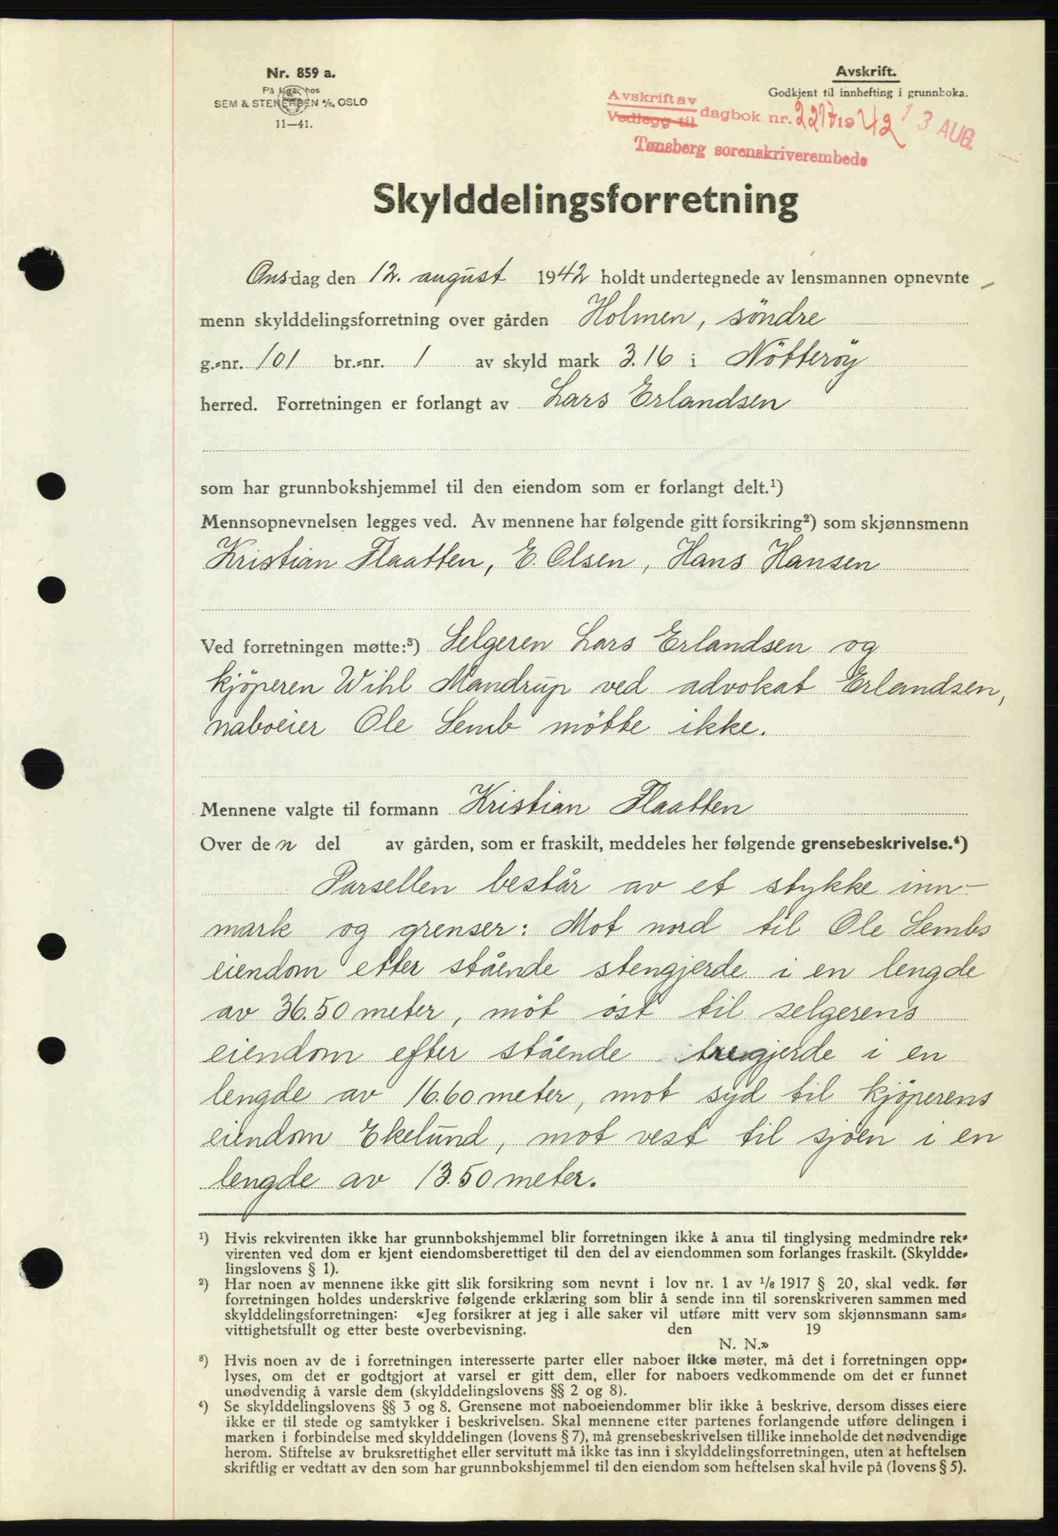 Nr. 859 a.
På lager hos
SEM & STENERSEN A/S, OSLO
11—41.
Avskrift.
Godkjent til innhefting i grunnboka.
Avskrift av
Vedlegg til dagbok nr. 2217 1942 13 AUG.
Tønsberg sorenskriverembede
Skylddelingsforretning
Onsdag den 12. august 1942 holdt undertegnede av lensmannen opnevnte
menn skylddelingsforretning over gården Holmen, söndre
g.-nr. 101 br.-nr. 1 av skyld mark 3.16 i Nötteröy
herred. Forretningen er forlangt av Lars Erlandsen
som har grunnbokshjemmel til den eiendom som er forlangt delt.¹)
Mennsopnevnelsen legges ved. Av mennene har følgende gitt forsikring²) som skjønnsmenn
Kristian Flaatten, E. Olsen, Hans Hansen
Ved forretningen møtte:³) Selgeren Lars Erlandsen og
kjöperen Wihl Mandrup ved advokat Erlandsen,
naboeier Ole Semb mötte ikke.
Mennene valgte til formann Kristian Flaatten
Over den del av gården, som er fraskilt, meddeles her følgende grensebeskrivelse.⁴)
Parsellen består av et stykke inn-
mark og grenser: Mot nord til Ole Sembs
eiendom etter stående stengjerde i en lengde
av 36.50 meter, möt öst til selgerens
eiendom efter stående tregjerde i en
lengde av 16.60 meter, mot syd til kjöperens
eiendom Ekelund, mot vest til sjöen i en
lengde av 13.50 meter.
¹) Hvis rekvirenten ikke har grunnbokshjemmel blir forretningen ikke å anta til tinglysing medmindre rek-
virenten ved dom er kjent eiendomsberettiget til den del av eiendommen som forlanges fraskilt. (Skyldde-
lingslovens § 1).
²) Har noen av mennene ikke gitt slik forsikring som nevnt i lov nr. 1 av 1/8 1917 § 20, skal vedk. før
forretningen holdes underskrive følgende erklæring som blir å sende inn til sorenskriveren sammen med
skylddelingsforretningen: «Jeg forsikrer at jeg i alle saker vil utføre mitt verv som skjønnsmann sam-
vittighetsfullt og etter beste overbevisning. den 19
N. N.»
³) Hvis noen av de i forretningen interesserte parter eller naboer ikke møter, må det i forretningen opp-
lyses, om det er godtgjort at varsel er gitt dem, eller for naboers vedkommende om det er funnet
unødvendig å varsle dem (skylddelingslovens §§ 2 og 8).
⁴) Se skylddelingslovens §§ 3 og 8. Grensene mot naboeiendommer blir ikke å beskrive, dersom disses eiere
ikke er til stede og samtykker i beskrivelsen. Skal mennene etter partenes forlangende utføre delingen i
marken i forbindelse med skylddelingen (lovens § 7), må grensebeskrivelsen tillike inneholde det nødvendige
herom. Stiftelse av bruksrettighet eller servitutt må ikke tas inn i skylddelingsforretningen, uten at heftelsen
skriftlig er vedtatt av den som har grunnbokshjemmel til den eiendom som heftelsen skal hvile på (lovens § 5).